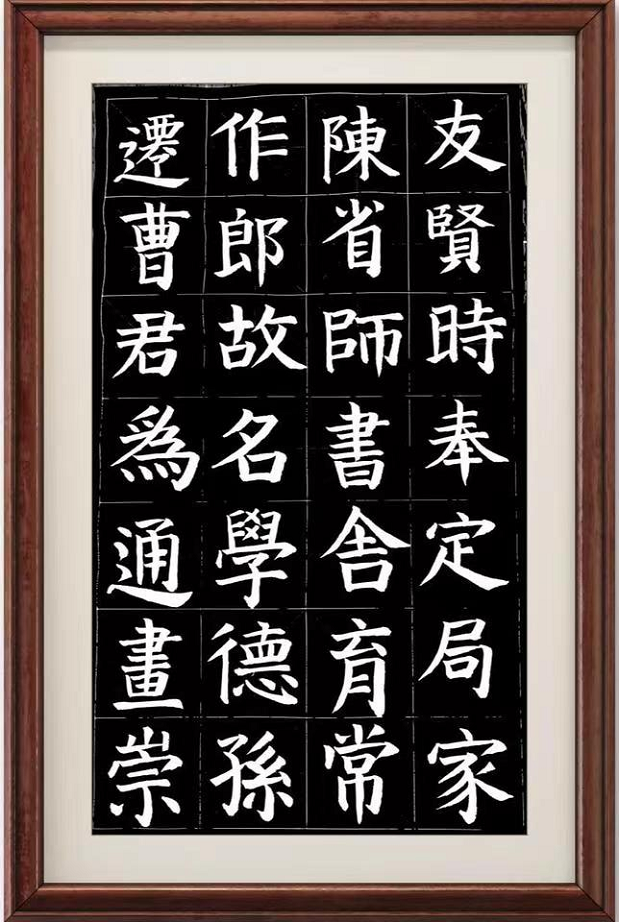 友賢時奉定局家
陳省師書舎育常
作郎故名學德孫
遷曹君為通畫崇